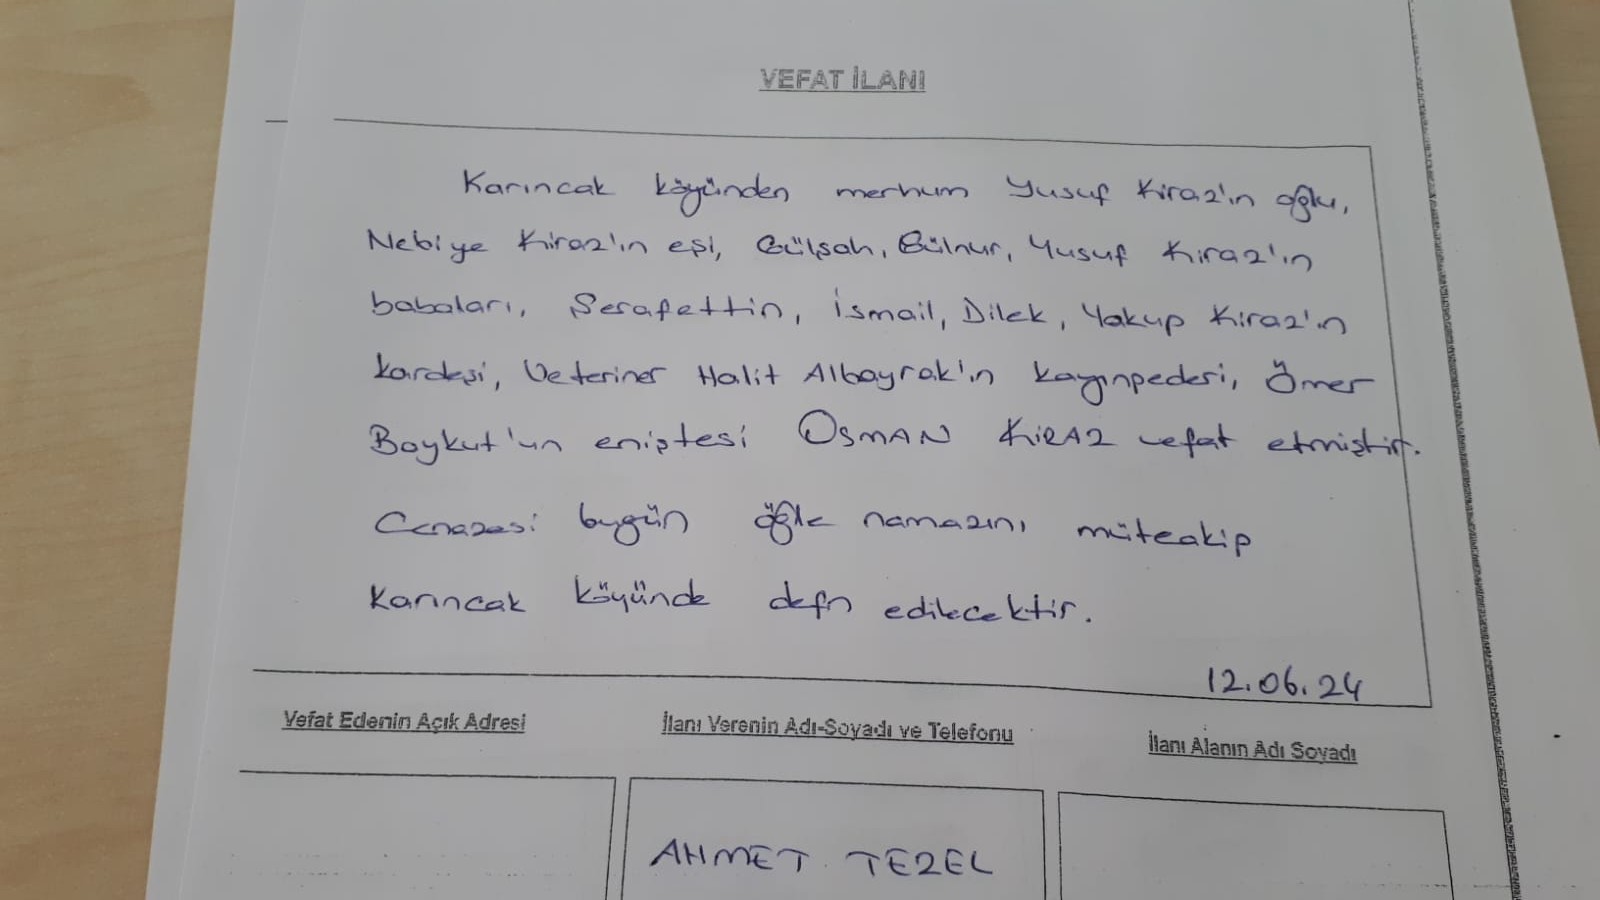 VEFAT İLANI
Karıncak köyünden merhum Yusuf Kiraz'ın oğlu,
Nebiye Kiraz'ın eşi, Gülşah, Gülnur, Yusuf Kiraz'ın
babaları, Şerafettin, İsmail, Dilek, Yakup Kiraz'ın
kardeşi, Veteriner Halit Albayrak'ın kayınpederi, Ömer
Baykut'un eniştesi OSMAN KİRAZ vefat etmiştir.
Cenazesi bugün öğle namazını müteakip
Karıncak köyünde defn edilecektir.
12.06.24
Vefat Edenin Açık Adresi
İlanı Verenin Adı-Soyadı ve Telefonu
İlanı Alanın Adı Soyadı
AHMET TEZEL